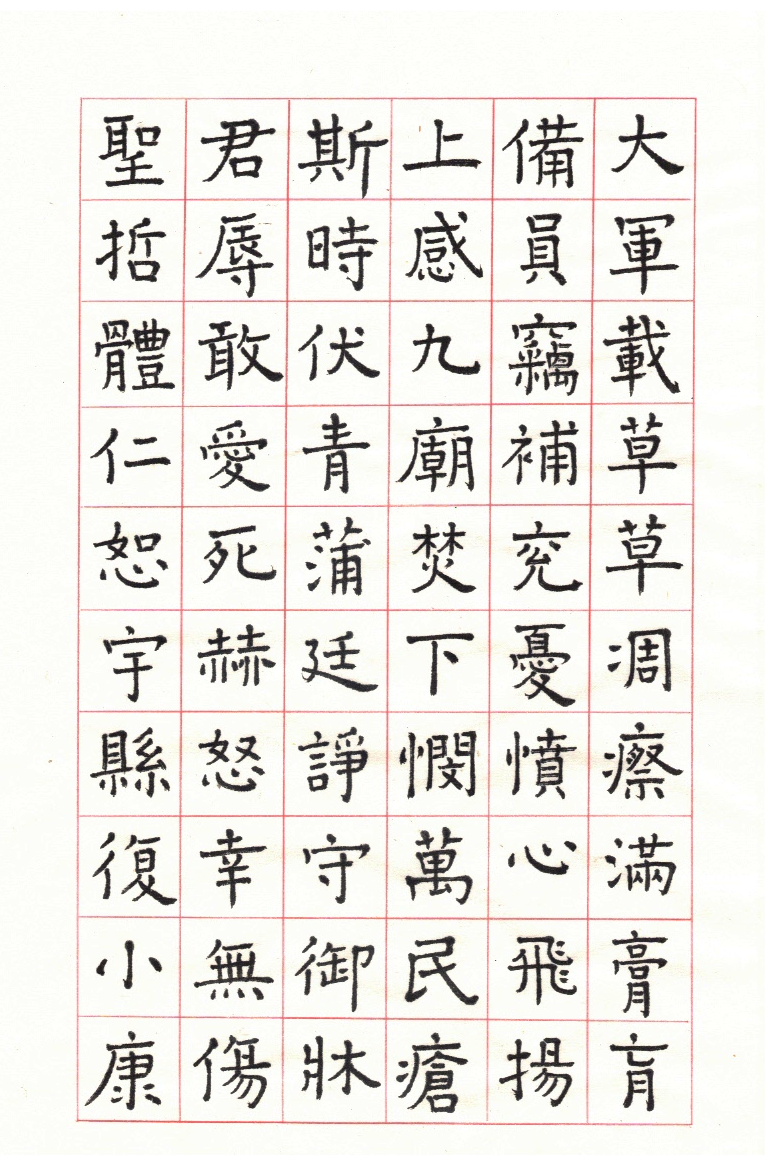 大軍載草草凋瘵滿膏肓
備員竊補充憂憤心飛揚
上感九廟焚下憫萬民瘡
斯時伏青蒲廷諍守御牀
君辱敢愛死赫怒幸無傷
聖哲體仁恕宇縣復小康